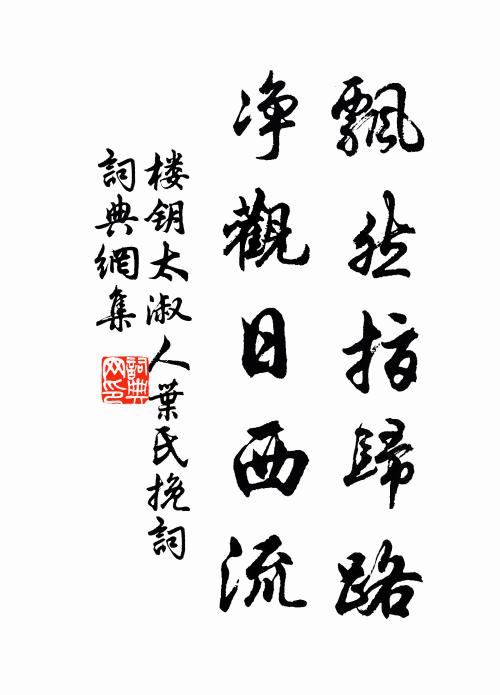 飄然指歸路
净觀日西流
楼钥太淑人葉氏挽詞
詞典網集
詞典
网印